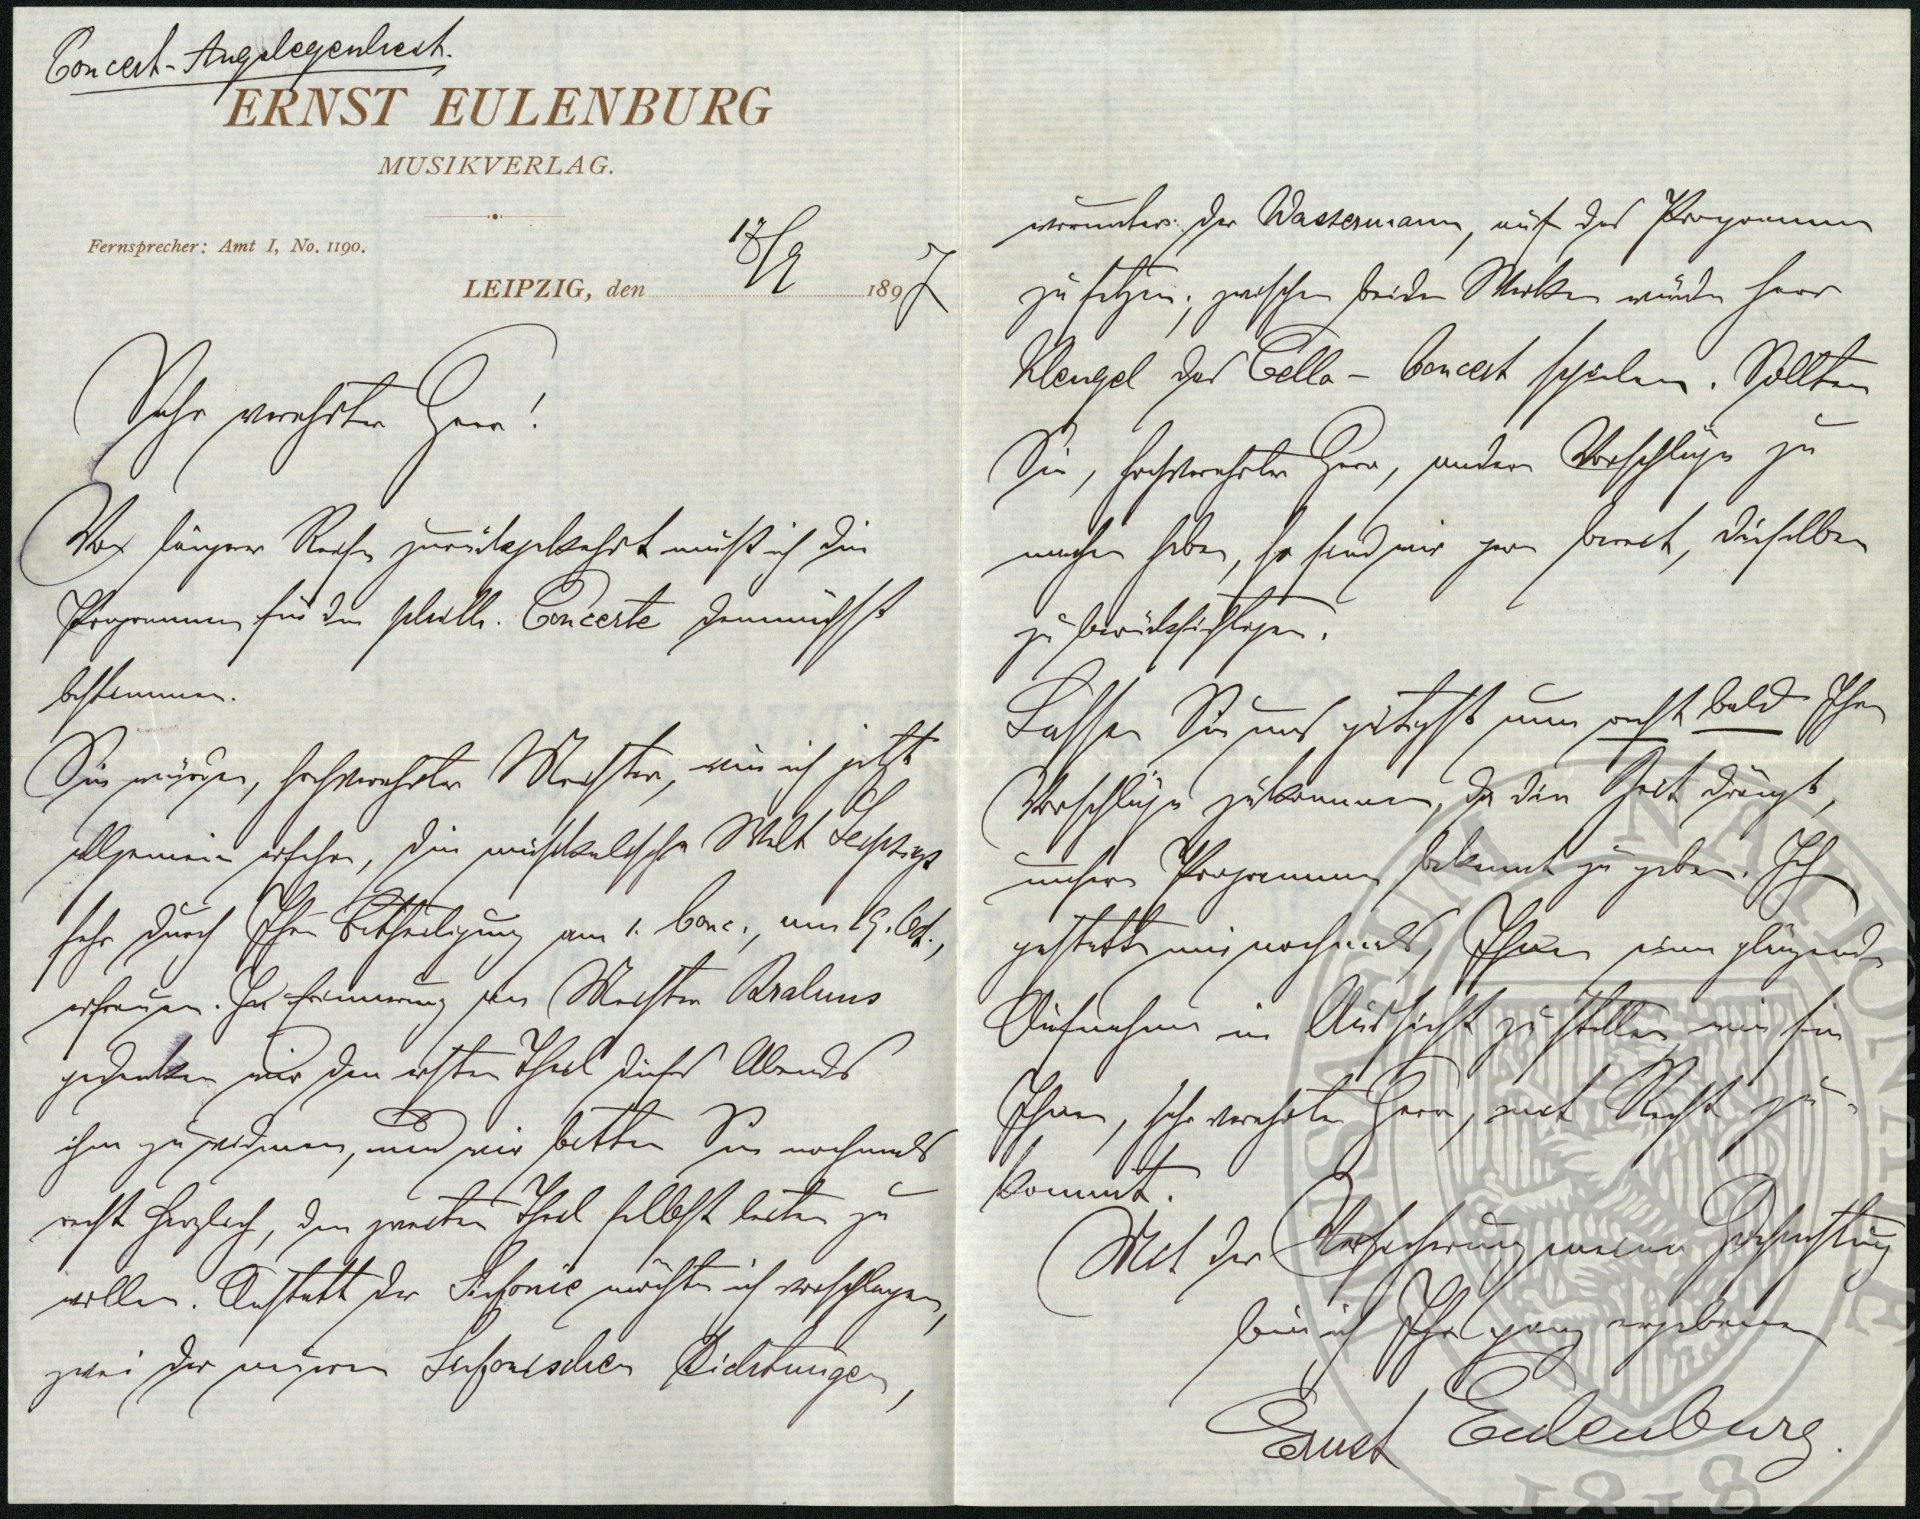 Concert-Angelegenheit.
ERNST EULENBURG
MUSIKVERLAG.
Fernsprecher: Amt I, No. 1190.
LEIPZIG, den 17/9 1897
Sehr verehrter Herr!
Von längerer Reise zurückgekehrt muß ich die
Programme für die philh. Concerte demnächst
bestimmen.
Sie würden, hochverehrter Meister, wie ich jetzt
allgemein erfahre, die musikalische Welt Leipzigs
sehr durch Ihre Betheiligung am 1. Conc., am 19. Oct.,
erfreuen. Zur Erinnerung an Meister Brahms
gedenken wir den ersten Theil dieses Abends
ihm zu widmen, und wir bitten Sie nochmals
recht herzlich, den zweiten Theil selbst leiten zu
wollen. Anstatt der Sinfonie möchte ich vorschlagen,
zwei der neueren Sinfonischen Dichtungen,
worunter der Wassermann, auf das Programm
zu setzen; zwischen beiden Werken würde Herr
Klengel das Cello-Concert spielen. Sollten
Sie, hochverehrter Herr, andere Vorschläge zu
machen haben, so sind wir gern bereit, dieselben
zu berücksichtigen.
Lassen Sie uns gütigst nun recht bald Ihre
Vorschläge zukommen, da die Zeit drängt,
unsere Programme bekannt zu geben. Ich
gestatte mir nochmals, Ihnen eine glänzende
Aufnahme in Aussicht zu stellen, wie sie
Ihnen, sehr verehrter Herr, mit Recht zu-
kommt.
Mit der Versicherung meiner Hochachtung
bin ich Ihr ganz ergebener
Ernst Eulenburg.
MUSAEUM NATIONALE
1818